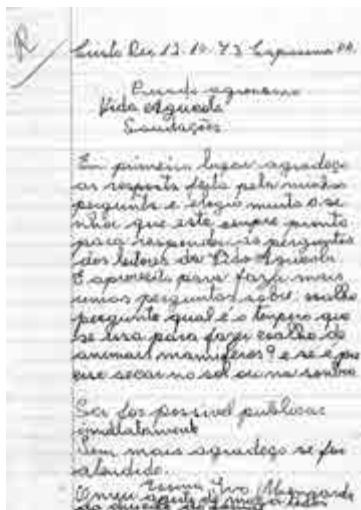 R
12.10.73
Prezado agronomo
Vida Agricola
Saudações
Em primeiro lugar agradeço
as resposta feita pela minha
pergunta e elogio muito o se
nhor que esta sempre pronto
para responder as perguntas
dos leitores da Vida Agricola
E aproveito para fazer mais
umas perguntas sobre coalho
pergunto qual é o tempero que
se usa para fazer coalho de
animais mamiferos? e se é pre
ciso secar no sol ou na sombra
Ser for possivel publicar
Sem mais agradeço se for
atendido.